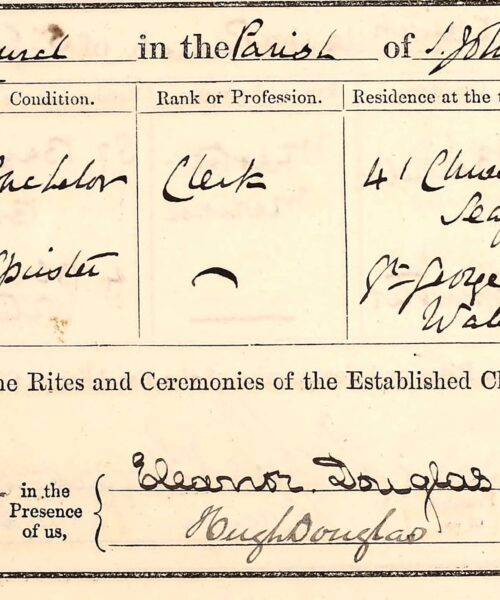 in the Parish of S. Joh
Condition. Rank or Profession. Residence at the t
Bachelor Clerk 41 Chu
Sea
Spinster
Wal
he Rites and Ceremonies of the Established Ch
in the
Presence
of us,
Eleanor Douglas
Hugh Douglas